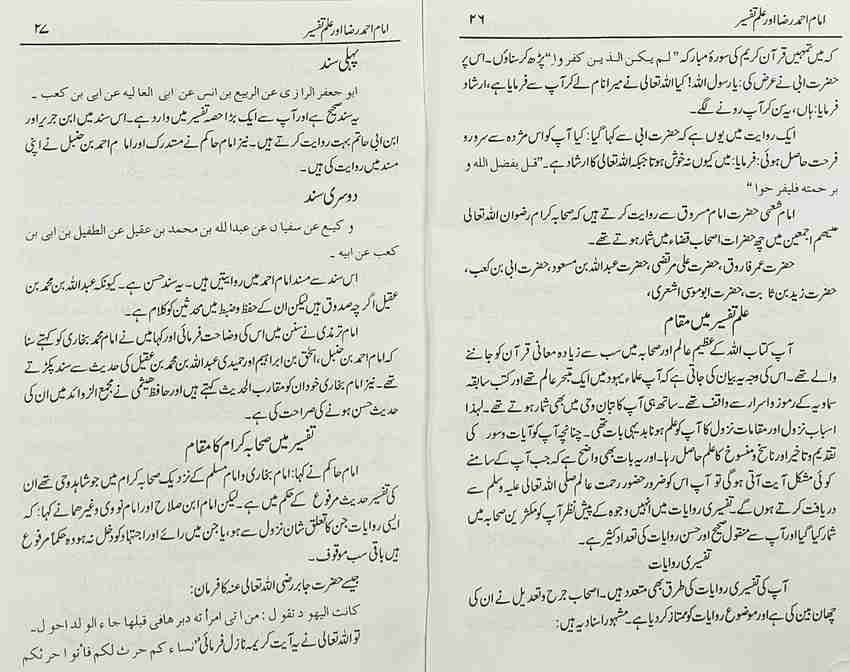 امام احمد رضا اور علم تفسیر ۲۶
کہ میں تمہیں قرآن کریم کی سورۂ مبارکہ "لم یکن الذین کفروا" پڑھ کر سناؤں۔ اس پر
حضرت ابی نے عرض کی: یا رسول اللہ! کیا اللہ تعالی نے میرا نام لے کر آپ سے فرمایا ہے، ارشاد
فرمایا: ہاں، یہ سن کر آپ رونے لگے۔
ایک روایت میں یوں ہے کہ حضرت ابی سے کہا گیا: کیا آپ کو اس مژدہ سے سرور و
فرحت حاصل ہوئی: فرمایا: میں کیوں نہ خوش ہوتا جبکہ اللہ تعالی کا ارشاد ہے۔ "قل بفضل الله و
بر حمته فليفر حوا"
امام شعبی حضرت امام مسروق سے روایت کرتے ہیں کہ صحابہ کرام رضوان اللہ تعالی
علیہم اجمعین میں چھ حضرات اصحاب قضاء میں شمار ہوتے تھے۔
حضرت عمر فاروق، حضرت علی مرتضی، حضرت عبداللہ بن مسعود، حضرت ابی بن کعب،
حضرت زید بن ثابت، حضرت ابو موسی اشعری،
علم تفسیر میں مقام
آپ کتاب اللہ کے عظیم عالم اور صحابہ میں سب سے زیادہ معانی قرآن کو جاننے
والے تھے۔ اس کی وجہ یہ بیان کی جاتی ہے کہ آپ علماء یہود میں ایک متبحر عالم تھے اور کتب سابقہ
سماویہ کے رموز و اسرار سے واقف تھے۔ ساتھ ہی آپ کاتبان وحی میں بھی شمار ہوتے تھے۔ لہذا
اسباب نزول اور مقامات نزول کا آپ کو علم ہونا بدیہی بات تھی۔ چنانچہ آپ کو آیات و سور کی
تقدیم و تاخیر اور ناسخ و منسوخ کا علم حاصل رہا۔ اور یہ بات بھی واضح ہے کہ جب آپ کے سامنے
کوئی مشکل آیت آتی ہوگی تو آپ اس کو ضرور حضور رحمت عالم صلی اللہ تعالی علیہ وسلم سے
دریافت کرتے ہوں گے۔ تفسیری روایات میں انہیں وجوہ کے پیش نظر آپ کو مکثرین صحابہ میں
شمار کیا گیا اور آپ سے منقول صحیح اور حسن روایات کی تعداد کثیر ہے۔
تفسیری روایات
آپ کی تفسیری روایات کی طرق بھی متعدد ہیں۔ اصحاب جرح و تعدیل نے ان کی
چھان بین کی ہے اور موضوع روایات کو ممتاز کر دیا ہے۔ مشہور اسناد یہ ہیں:
امام احمد رضا اور علم تفسیر ۲۷
پہلی سند
ابو جعفر الرازی عن الربیع بن انس عن ابی العالیه عن ابی بن کعب ۔
یہ سند صحیح ہے اور آپ سے ایک بڑا حصہ تفسیر میں وارد ہے۔ اس سند میں ابن جریر اور
ابن ابی حاتم بہت روایت کرتے ہیں۔ نیز امام حاکم نے متدرک اور امام احمد بن حنبل نے اپنی
مسند میں روایت کی ہیں۔
دوسری سند
وکیع عن سفیان عن عبدالله بن محمد بن عقیل عن الطفیل بن ابی بن
کعب عن ابیه ۔
اس سند سے مسند امام احمد میں روایتیں ہیں۔ یہ سند حسن ہے۔ کیونکہ عبداللہ بن محمد بن
عقیل اگرچہ صدوق ہیں لیکن ان کے حفظ و ضبط میں محدثین کو کلام ہے۔
امام ترمذی نے سنن میں اس کی وضاحت فرمائی اور کہا میں نے امام محمد بخاری کو کہتے سنا
کہ امام احمد بن حنبل، اسحٰق بن ابراہیم اور حمیدی عبداللہ بن محمد بن عقیل کی حدیث سے سند پکڑتے
تھے۔ نیز امام بخاری خود ان کو مقارب الحدیث کہتے ہیں اور حافظ ہیثمی نے مجمع الزوائد میں ان کی
حدیث حسن ہونے کی صراحت کی ہے۔
تفسیر میں صحابہ کرام کا مقام
امام حاکم نے کہا: امام بخاری و امام مسلم کے نزدیک صحابہ کرام میں جو شاہد وحی تھے ان
کی تفسیر حدیث مرفوع کے حکم میں ہے۔ لیکن امام ابن صلاح اور امام نووی وغیرھما نے کہا: کہ
ایسی روایات جن کا تعلق شان نزول سے ہو، یا جن میں رائے اور اجتہاد کو دخل نہ ہو وہ حکماً مرفوع
ہیں باقی سب موقوف۔
جیسے حضرت جابر رضی اللہ تعالی عنہ کا فرمان:
كانت اليهود تقول : من اتى امرأته دبرها فى قبلها جاء الولد احول۔
تو اللہ تعالی نے یہ آیت کریمہ نازل فرمائی "نساء كم حرث لكم فأتوا حرثكم